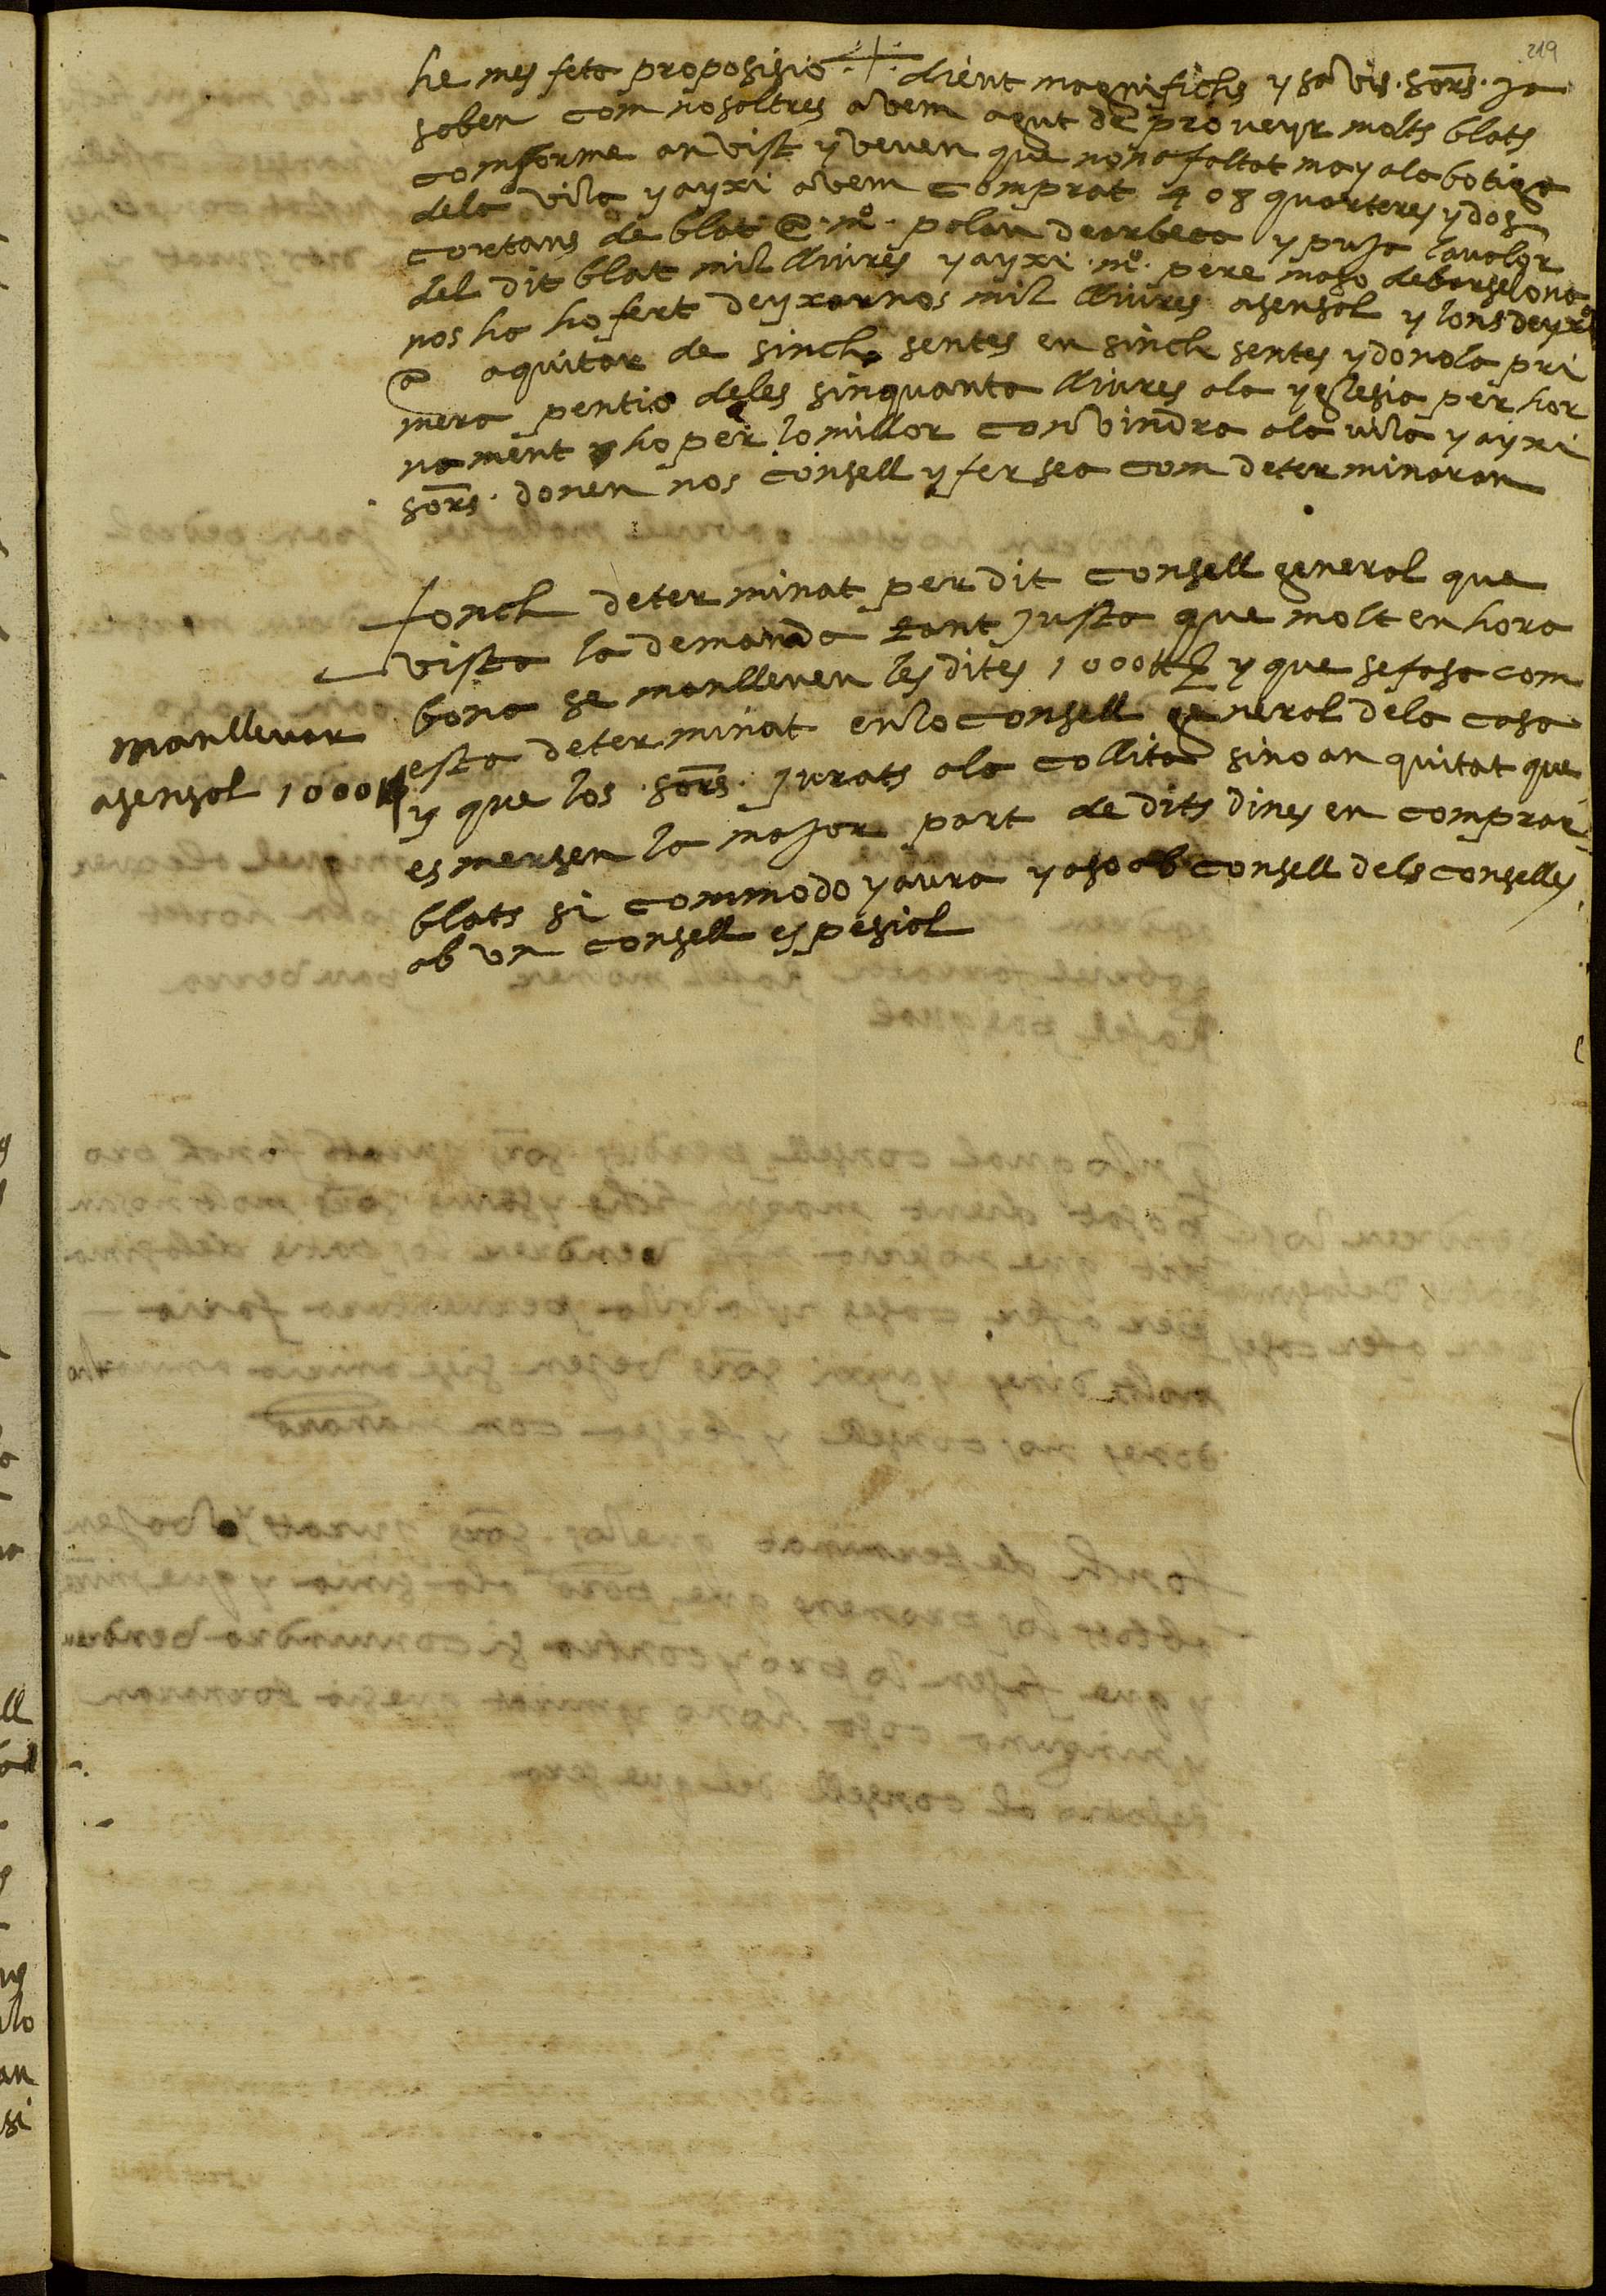 219
he mes feta proposisio dient magnifichs y savis sors. ja
saben com nosaltres avem agut de proveyr molts blats
comforme an vist y veuen que no na faltat may ala botiga
dela vila y ayxi avem comprat 408 quarteres y dos
cortans de blat a mo. palau de arbeca y puja lavalor
del dit blat mil lliures y ayxi mo. pere maso de barselona
nos ha hofert deyxarnos mil lliures asensal y lons deyxa
a aquitar de sinch sentes en sinch sentes y dona la pri
mera pentio de les sinquanta lliures ala yglesia per hor
nament y ho per lo millor convindra ala vila y ayxi
sors. donen nos consell y fer sea com determinaran
fonch determinat per dit consell general que
vista la demanda tant justa que molt en hora
bona se manlleven les dites 1000 ll y que se fasa com
esta determinat en lo consell general dela casa
y que los sors. jurats ala collita sino an quitat que
esmersen la major part de dits dines en comprar
blats si commodo y aura y aso ab consell dels consellés
ab un consell espesial
manllevar
asensal 1000 ll